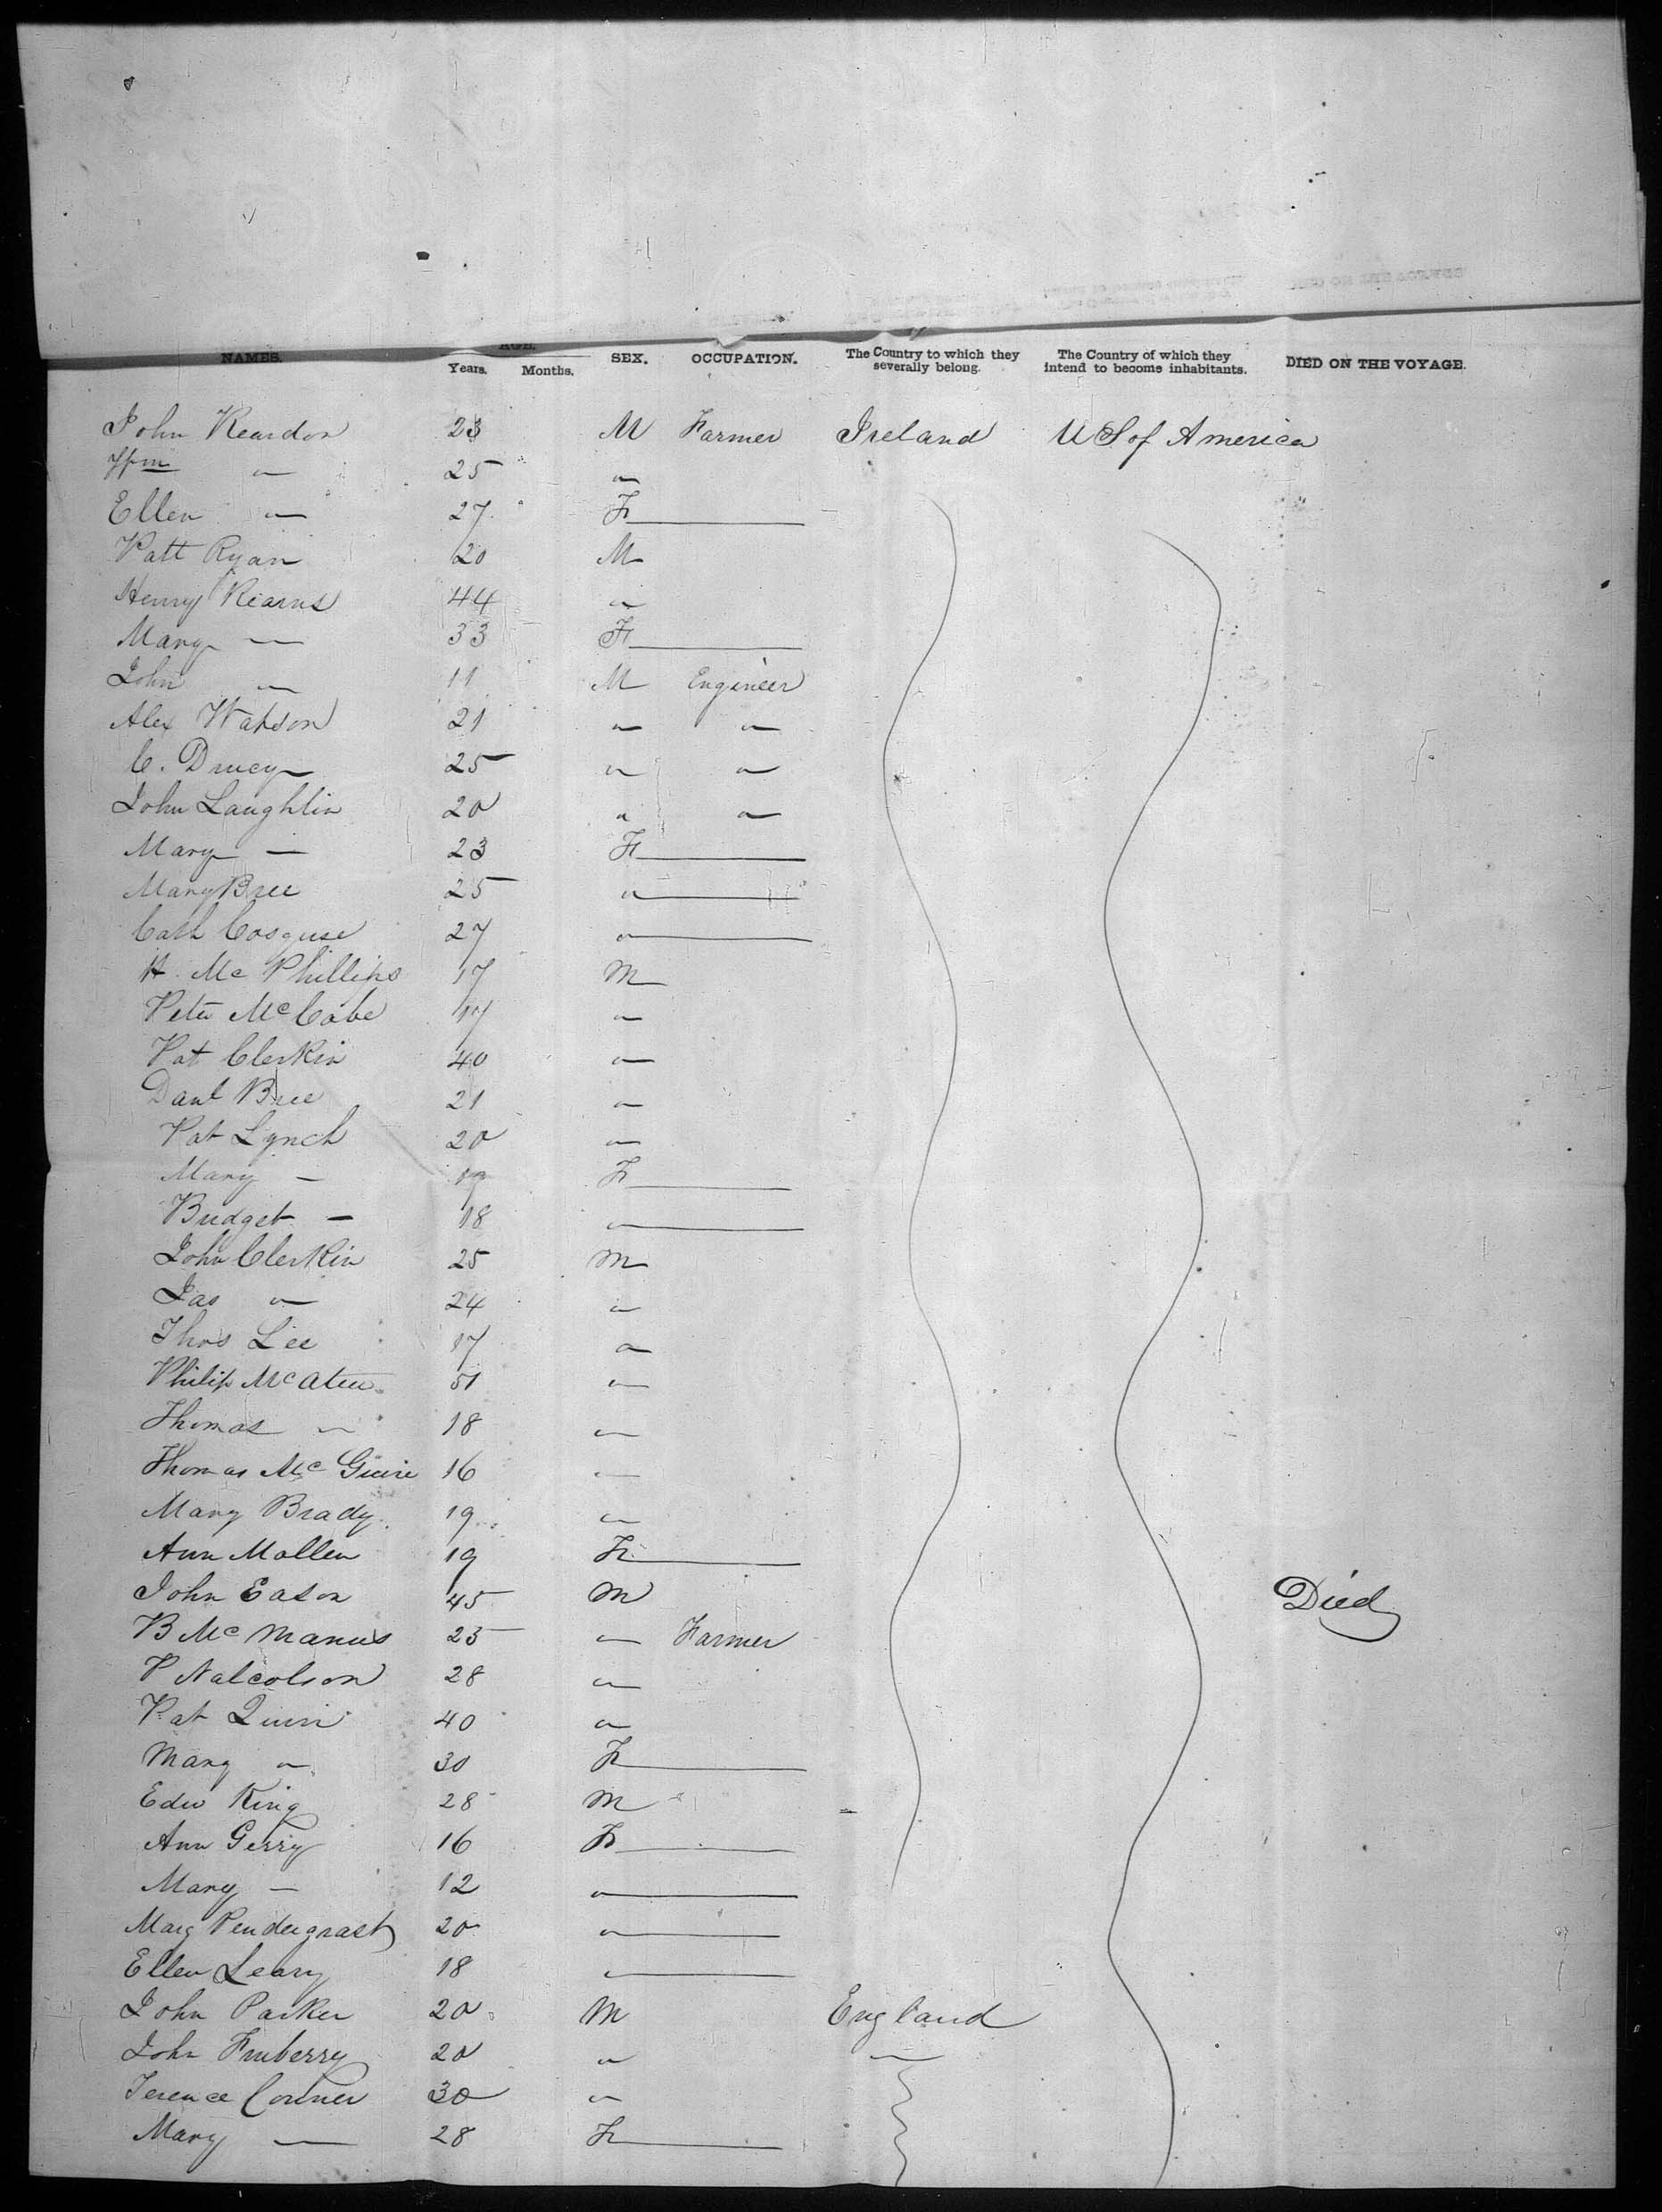 NAMES. AGE. SEX. OCCUPATION. The Country to which they severally belong. The Country of which they intend to become inhabitants. DIED ON THE VOYAGE.
Years. Months.
John Reardon 23 M Farmer Ireland U S of America
Wm " 25 "
Ellen " 27 F
Patt Ryan 20 M
Henry Kearns 44 "
Mary — 33 F
John " 11 M Engineer
Alex Watson 21 " "
C. Drucy 25 " "
John Laughlin 20 " "
Mary — 23 F
Mary Bree 25 "
Cath Cosguse 27 "
H. Mc Phillips 17 M
Peter McCabe 17 "
Pat Clerkin 40 "
Danl Bree 21 "
Pat Lynch 20 "
Mary — 19 F
Bridget — 18 "
John Clerkin 25 M
Jas " 24 "
Thos Lee 17 "
Philip McAteer 51 "
Thomas " 18 "
Thomas Mc Guire 16 "
Mary Brady 19 "
Ann Mollen 19 F
John Eason 45 M Died
B Mc Manus 25 " Farmer
P Nalcolson 28 "
Pat Quin 40 "
Mary " 30 F
Edw King 28 M
Ann Gerry 16 F
Mary — 12 "
Marg Pendergrast 20 "
Ellen Leary 18 "
John Parker 20 M England
John 20 " "
Terence Conner 30 "
Mary — 28 F